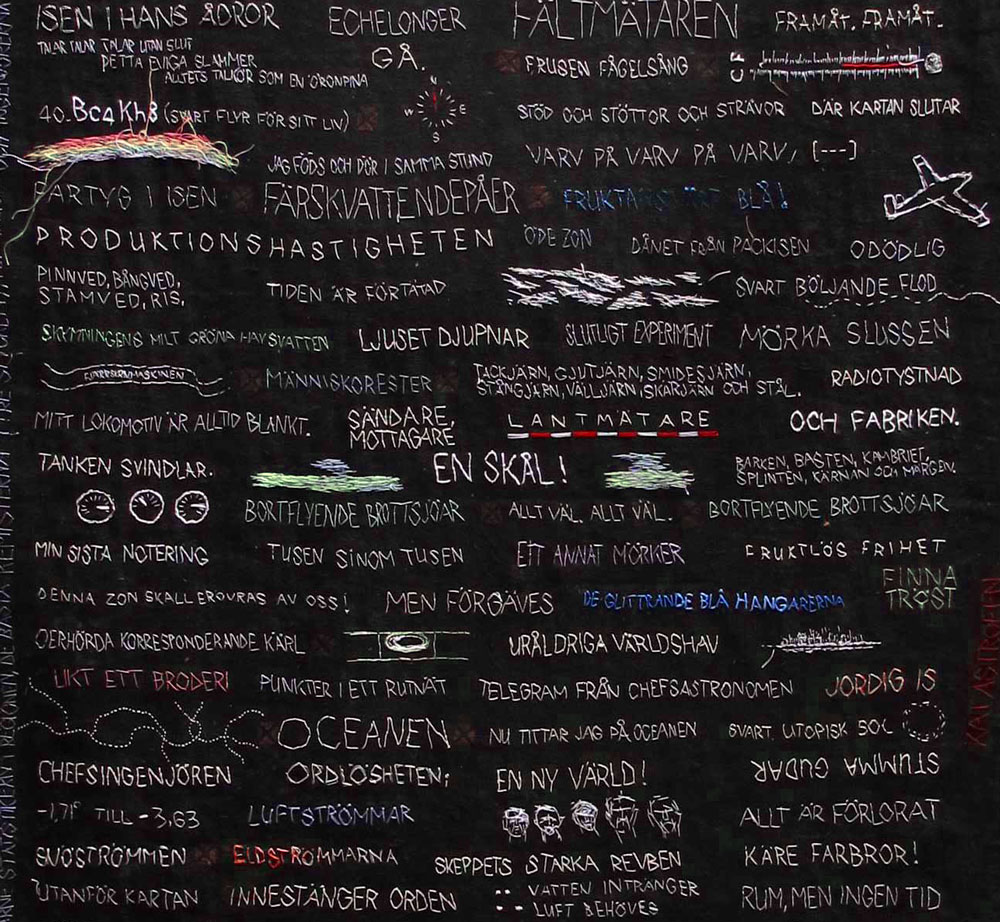 ISEN I HANS ÅDROR
ECHELONGER
FÄLTMÄTAREN
FRAMÅT. FRAMÅT.
TALAR TALAR TALAR UTAN SLUT
DETTA EVIGA SLAMMER
ALLTETS TALKÖR SOM EN ÖRONPINA
GÅ.
FRUSEN FÅGELSÅNG
C F
40. Bc4 Kh8 (SVART FLYR FÖR SITT LIV)
N
W E
S
STÖD OCH STÖTTOR OCH STRÄVOR
DÄR KARTAN SLUTAR
JAG FÖDS OCH DÖR I SAMMA STUND
VARV PÅ VARV PÅ VARV, [---]
FARTYG I ISEN
FÄRSKVATTENDEPÅER
BLÅ!
PRODUKTIONSHASTIGHETEN
ÖDE ZON
DÅNET FRÅN PACKISEN
ODÖDLIG
PINNVED, BÅNGVED,
STAMVED, RIS,
TIDEN ÄR FÖRTÄTAD
SVART BÖLJANDE FLOD
SKYMNINGENS MILT GRÖNA HAVSVATTEN
LJUSET DJUPNAR
SLUTLIGT EXPERIMENT
MÖRKA SLUSSEN
MÄNNISKORESTER
TACKJÄRN, GJUTJÄRN, SMIDESJÄRN,
STÅNGJÄRN, VÄLLJÄRN, SKÄRJÄRN OCH STÅL.
RADIOTYSTNAD
MITT LOKOMOTIV ÄR ALLTID BLANKT.
SÄNDARE,
MOTTAGARE
LANTMÄTARE
OCH FABRIKEN.
TANKEN SVINDLAR.
EN SKÅL!
BARKEN, BASTEN, KAMBRIET,
SPLINTEN, KÄRNAN OCH MÄRGEN.
BORTFLYENDE BROTTSJÖAR
ALLT VÄL. ALLT VÄL.
BORTFLYENDE BROTTSJÖAR
MIN SISTA NOTERING
TUSEN SINOM TUSEN
ETT ANNAT MÖRKER
FRUKTLÖS FRIHET
DENNA ZON SKALL ERÖVRAS AV OSS!
MEN FÖRGÄVES
DE GLITTRANDE BLÅ HANGARERNA
FINNA
TRÖST
OERHÖRDA KORRESPONDERANDE KÄRL
URÅLDRIGA VÄRLDSHAV
LIKT ETT BRODERI
PUNKTER I ETT RUTNÄT
TELEGRAM FRÅN CHEFSASTRONOMEN
JORDIG IS
KATASTROFEN
OCEANEN
NU TITTAR JAG PÅ OCEANEN
SVART UTOPISK SOL
CHEFSINGENJÖREN
ORDLÖSHETEN;
EN NY VÄRLD!
STUMMA GUDAR
-1,71° TILL -3,63
LUFTSTRÖMMAR
ALLT ÄR FÖRLORAT
SNÖSTRÖMMEN
ELDSTRÖMMARNA
SKEPPETS STARKA REVBEN
KÄRE FARBROR!
UTANFÖR KARTAN
INNESTÄNGER ORDEN
VATTEN INTRÄNGER
LUFT BEHÖVES
RUM, MEN INGEN TID